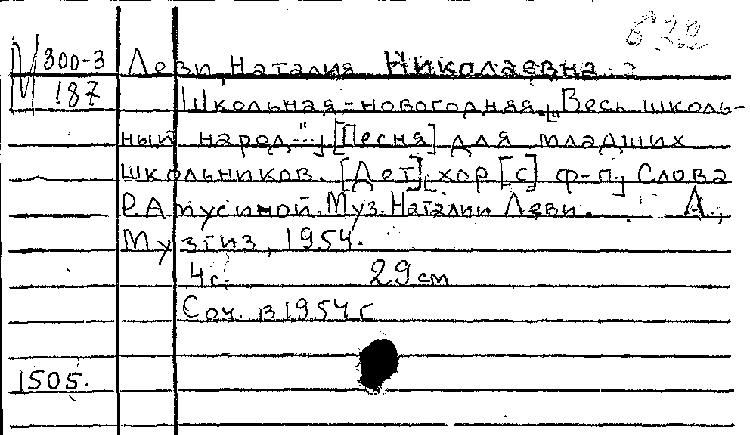 632
М 300-3 Леви, Наталия Николаевна.
М 187 Школьная-новогодняя. ["Весь школь-
ный народ..."]. [Песня] для младших
школьников. [Дет] хор [с] ф-п. Слова
Муз. Наталии Леви. Л.,
Музгиз, 1954.
4 с. 29 см
Соч. в 1954 г
1505.